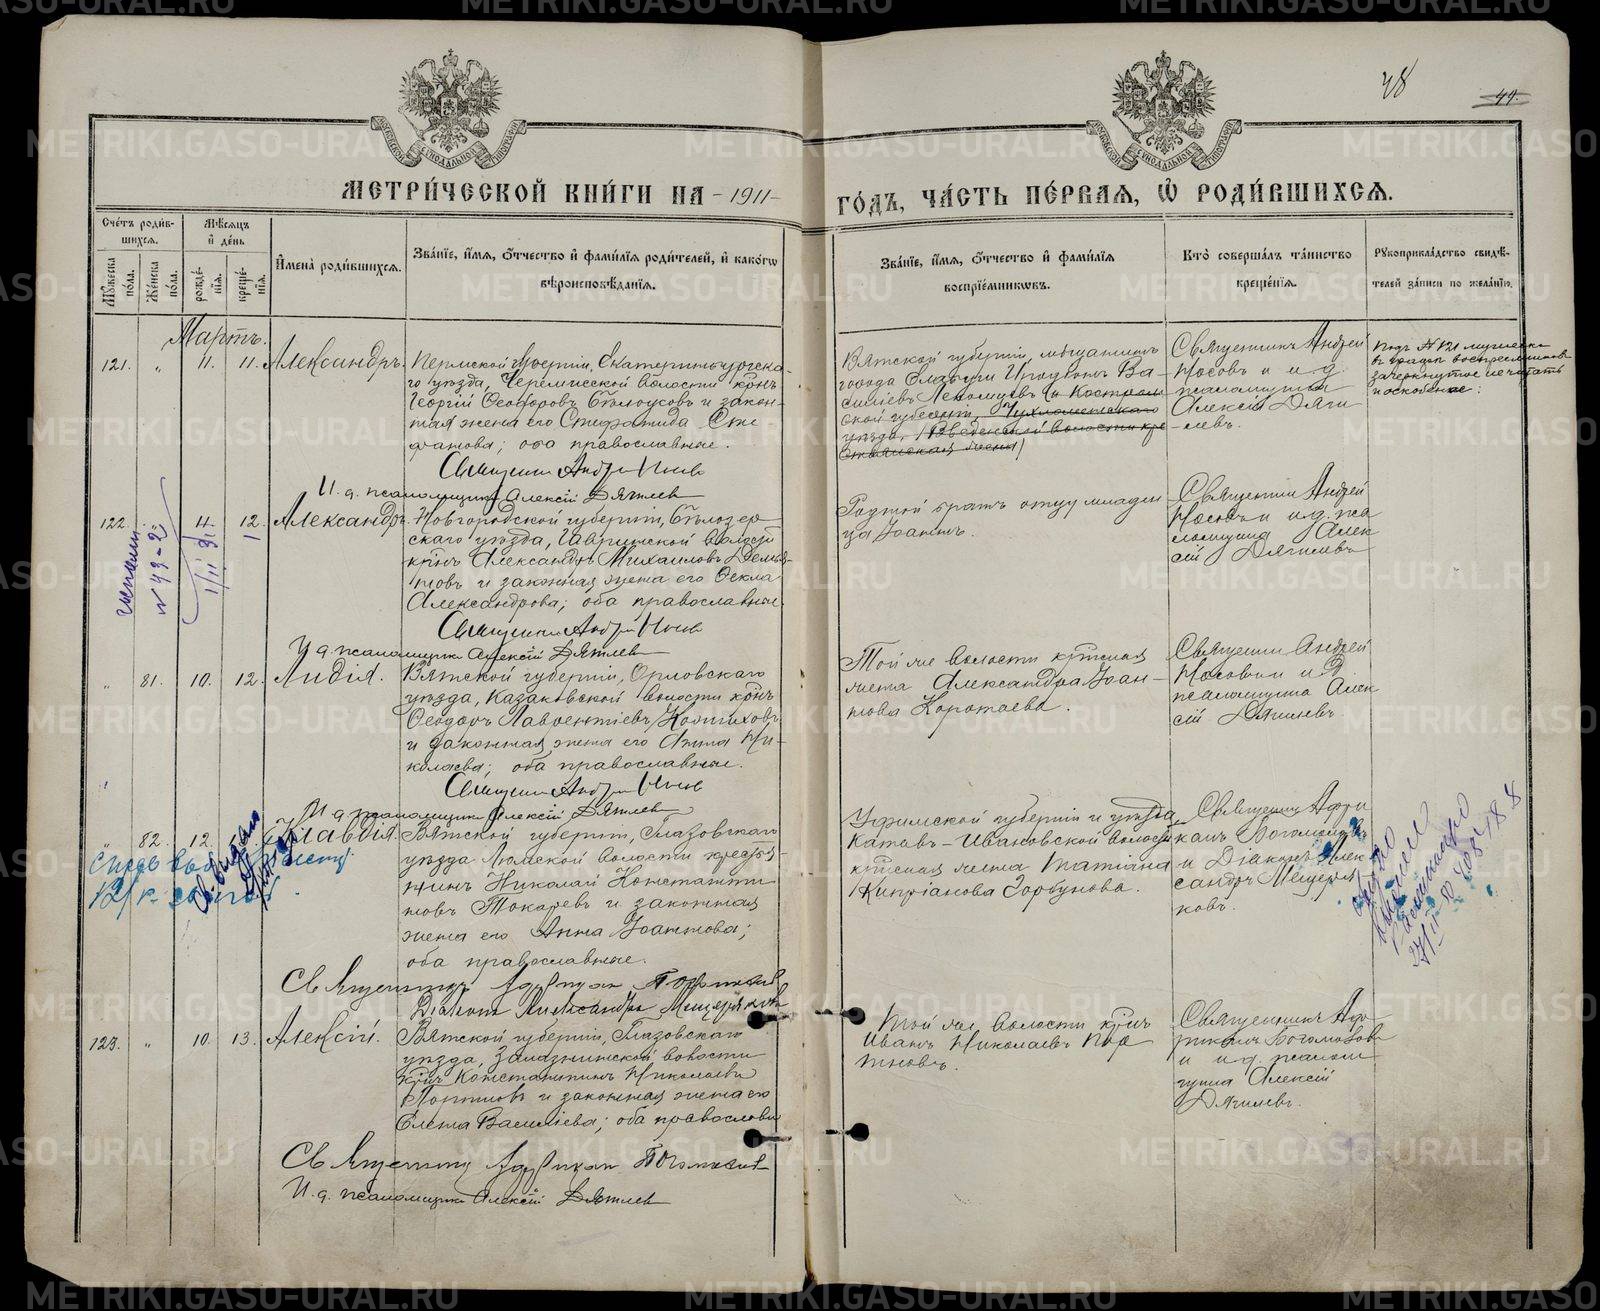 48
44.
МЕТРИ́ЧЕСКОЙ КНИ́ГИ НА -1911- ГО́ДЪ, ЧА́СТЬ ПЕ́РВАЯ, Ѡ҆ РОДИ́ВШИХСЯ.
Сче́тъ роди́в-
шихся.
Мѣ́сяцъ
и҆ де́нь
Мꙋ́жеска по́ла.
Же́нска по́ла.
рожде́-
нїя.
креще́-
нїя.
И҆мена̀ роди́вшихся.
Зва́нїе, и҆́мя, ѻ҆́тчество и҆ фами́лїя роди́телей, и҆ како́гѡ
вѣроисповѣ́данїя.
Зва́нїе, и҆́мя, ѻ҆́тчество и҆ фами́лїя
воспрїе́мникѡвъ.
Кто̀ соверша́лъ та́инство
креще́нїя.
Рꙋкоприкла́дство свидѣ́-
телей за́писи по жела́нїю.
Мартъ.
121. " 11. 11. Александръ.
Пермской губерніи, Екатеринбургска-
го уѣзда, Черемисской волости крнъ
Георгій Ѳеодоровъ Бѣлоусовъ и закон-
ная жена его
Сте
фанова; оба православные.
Священникъ Андрей Носовъ
И. д. псаломщика Алексій Дягилев
Вятской губерніи, мѣщанинъ
города Слободи Ва-
силіевъ (и Костром
ской губерніи, Чухломскаго
уѣзда, волости кре
стьянская
Священникъ Андрей
Носовъ и и д
псаломщика
Алексій Дяги
левъ.
Подъ № 121 мужеска
въ графѣ воспріемниковъ
зачеркнутое не читать
122. 4. 12. Александръ.
Новгородской губерніи, Бѣлозер-
скаго уѣзда, волости
крнъ Александръ Михаиловъ Демья-
новъ и законная жена его Ѳекла
Александрова; оба православные.
Священникъ Андрей Носовъ
И д. псаломщика Алексій Дягилев
Родной братъ отцу младен
ца Іоаннъ.
Священникъ Андрей
Носовъ и и д. пса
ломщика Алек
сій Дягилевъ
№ 49-2
" 81. 10. 12. Лидія.
Вятской губерніи, Орловскаго
уѣзда, Казаковской волости крнъ
Ѳеодоръ Лаврентіевъ
и законная жена его Анна Ни-
колаева; оба православные.
Священникъ Андрей Носов
И д псаломщика Алексій Дягилев
Той же волости кр̃нская
жена Александра Іоан-
нова Коротаева.
Священникъ Андрей
Носовъ и и д
псаломщика Алек
сій Дягилевъ
" 82. 12. Клавдія.
Вятской губерніи, Глазовскаго
уѣзда Люмской волости кресть-
янинъ Николай Константи
новъ Токаревъ и законная
жена его Анна Іоаннова;
оба православные.
Священникъ Африкан Богомолов
Діаконъ Александръ Мещеряков
Уфимской губерніи и уѣзда
Катавъ-Ивановской волости
кр̃нская жена Татіана
Кипріанова Горбунова.
Священникъ Афри
канъ Богомоловъ
и Діаконъ Алек
сандръ Мещеря
ковъ.
123. " 10. 13. Алексій.
Вятской губерніи, Глазовскаго
уѣзда, Залазнинской волости
крнъ Константинъ Николаевъ
Портновъ и законная жена его
Елена Васильева; оба православн
Священникъ Африкан Богомолов
И. д. псаломщика Алексій Дягилев
Той же волости крнъ
Иванъ Николаевъ Пор
тновъ.
Священникъ Аф
риканъ Богомоловъ
и и д. псалом
щика Алексій
Дягилевъ.